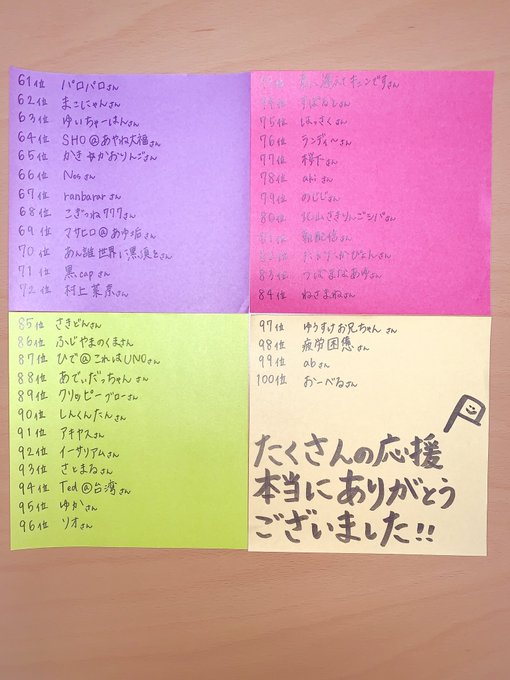 61位 パロパロさん
62位 まこにゃんさん
63位 ゆいちゃーはんさん
64位 SHO@あやね大福さん
65位 かき☆かおりんごさん
66位 Nosさん
67位 ranbararさん
68位 こぎつね777さん
69位 マサヒロ@あゆ垢さん
70位 あん誰世界に黒須とさん
71位 黒capさん
72位 村上菓奈さん
キュンですさん
75位 はっさくさん
76位 ランディ〜さん
77位 桜下さん
78位 akiさん
79位 のじじさん
80位 北山さきりんごシバさん
83位 つばまなあゆさん
84位 ねさまねさん
85位 さきどんさん
86位 ふじやまのくまさん
87位 ひで@これはUNOさん
88位 あでぃだっちゃんさん
89位 クリッピーブローさん
90位 しんくんたんさん
91位 アキヤスさん
92位 イーサリアムさん
93位 さとまねさん
94位 Ted@台湾さん
95位 ゆかさん
96位 リオさん
97位 ゆうすけお兄ちゃんさん
98位 疲労困憊さん
99位 abさん
100位 おーべるさん
たくさんの応援
本当にありがとう
ございました!!